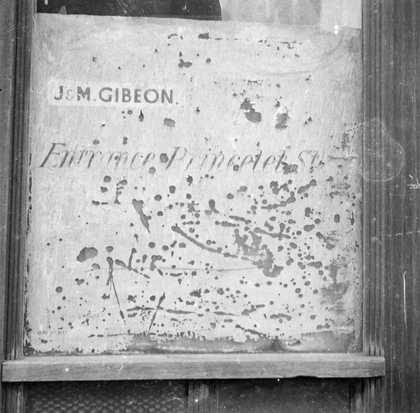 J&M.GIBEON.
Entrance Princelet St